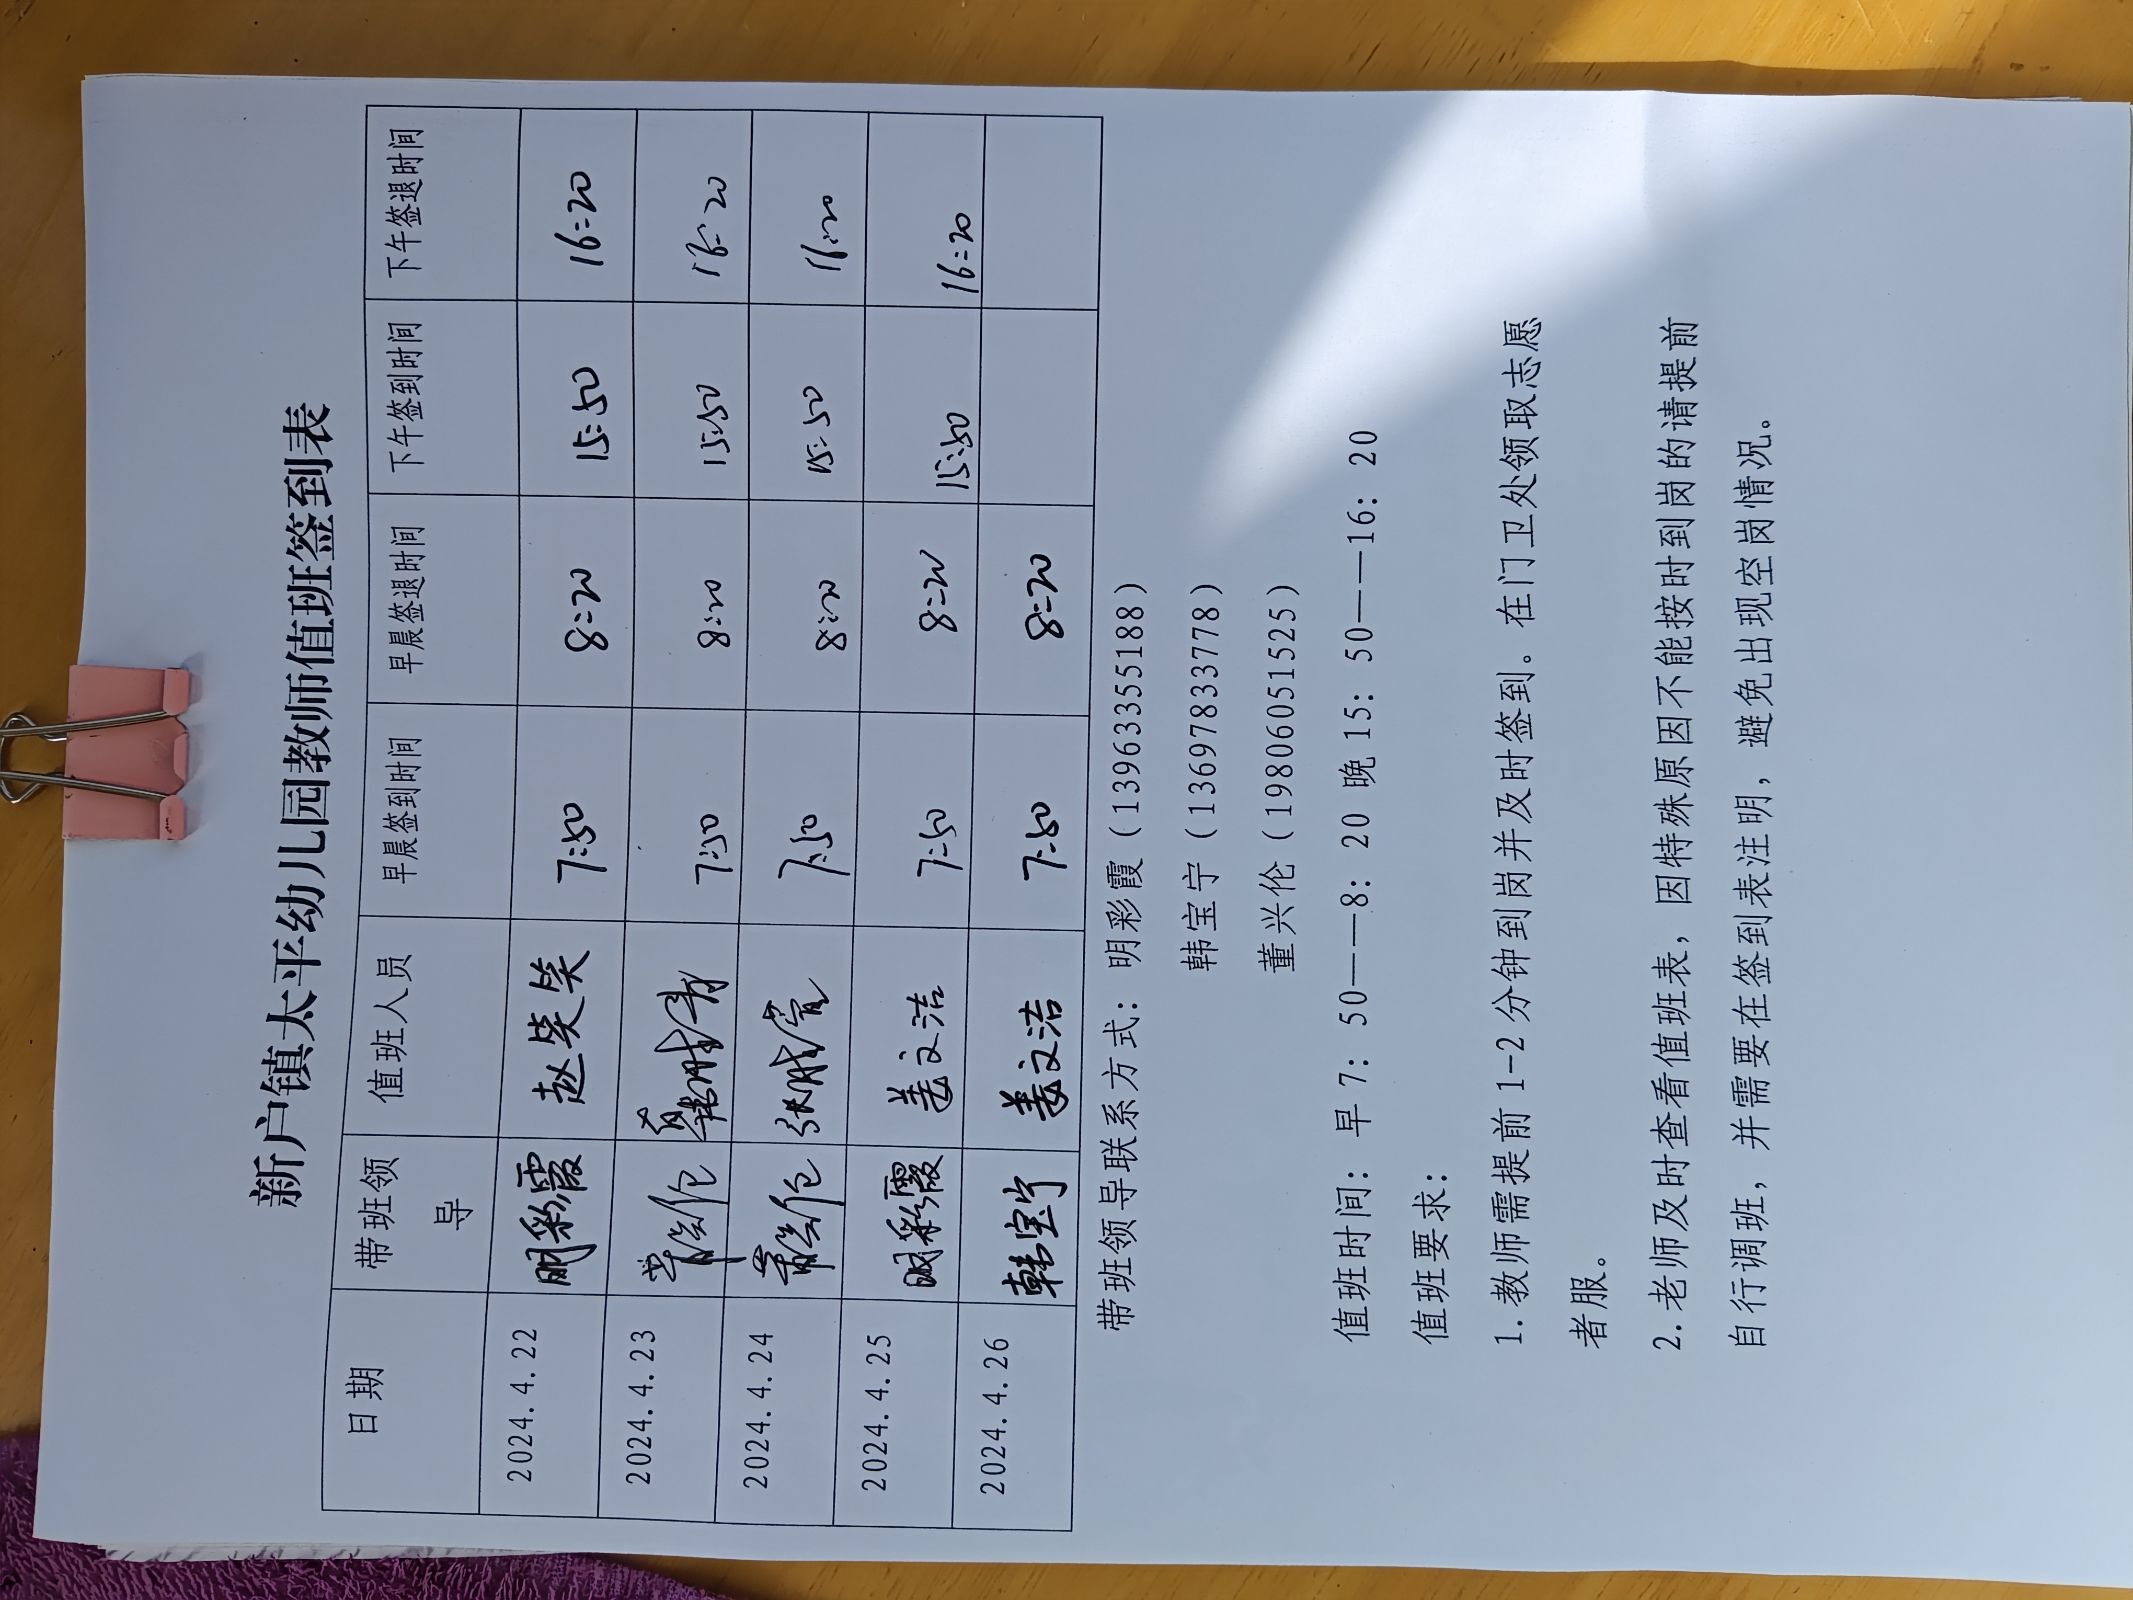 新户镇太平幼儿园教师值班签到表
日期 带班领导 值班人员 早晨签到时间 早晨签退时间 下午签到时间 下午签退时间
2024.4.22 明彩霞 赵笑笑 7:50 8:20 15:50 16:20
2024.4.23 7:50 8:20 15:50 16:20
2024.4.24 7:50 8:20 15:50 16:20
2024.4.25 明彩霞 姜文洁 7:50 8:20 15:50 16:20
2024.4.26 韩宝宁 姜文洁 7:50 8:20
带班领导联系方式：明彩霞（13963355188）
韩宝宁（13697833778）
董兴伦（19806051525）
值班时间：早 7：50——8：20 晚 15：50——16：20
值班要求：
1.教师需提前 1-2 分钟到岗并及时签到。在门卫处领取志愿
者服。
2.老师及时查看值班表，因特殊原因不能按时到岗的请提前
自行调班，并需要在签到表注明，避免出现空岗情况。